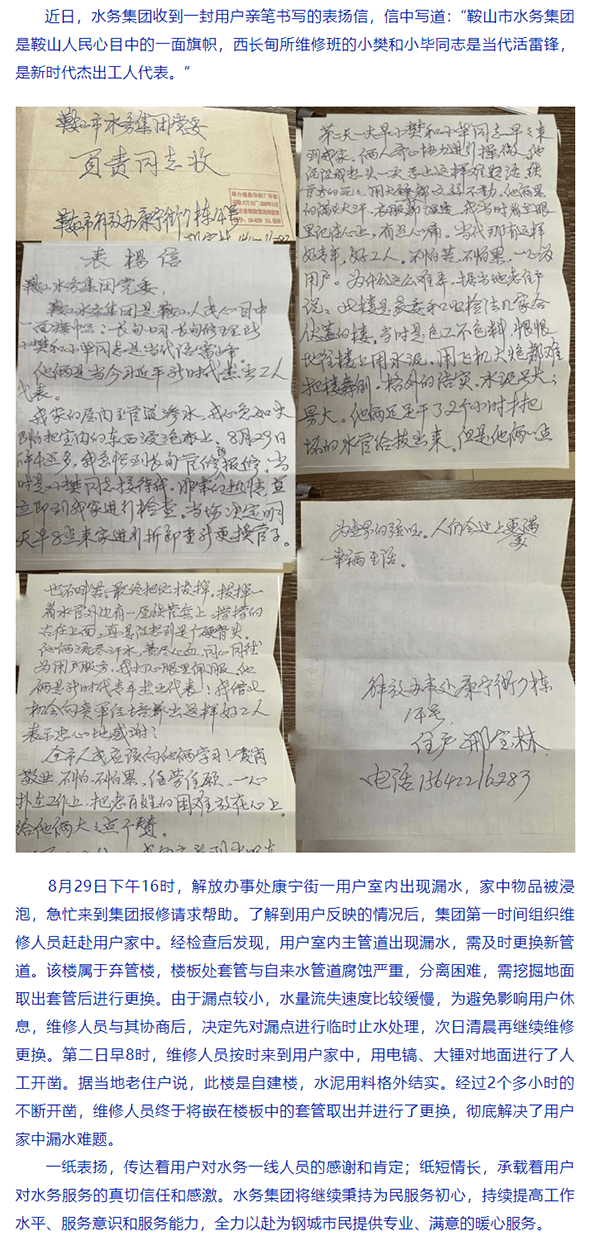 近日，水务集团收到一封用户亲笔书写的表扬信，信中写道：“鞍山市水务集团
是鞍山人民心目中的一面旗帜，西长甸所维修班的小樊和小毕同志是当代活雷锋，
是新时代杰出工人代表。”
鞍山市水务集团党委
负责同志收
表扬信
鞍山水务集团党委：
鞍山水务集团是鞍山人民心目中
小樊和小毕同志是当代活雷锋
他俩是当今习近平新时代杰出工人
代表。
我家的屋内主管道渗水，我心急如火
即怕把室内的东西浸泡上，8月29日
时是小樊同志接待我，非常的热情并
立即到我家进行检查。当场决定明
天早8点来家进行拆卸重新更换管子。
第二天一大早小樊和小毕同志早早来
到我家。俩人齐心协力进行操做。他
里记在心上，有些心痛。当代那有这样
好青年，好工人。不怕苦，不怕累，一心为
用户。为什么这么难弄，据当地老住户
伙盖的楼。当时是包工不包料，恨恨
地往楼上用水泥，用飞机大炮都难
把楼弄倒。格外的结实，水泥号大，
号大。他俩足足干了2个小时才把
坏的水管给拔出来。但是他俩一点
着水管外边有一层铁管套上，
为用户服务，我打心眼里佩服，他
俩是新时代青年杰出代表！我借此
机会向贵单位培养出这样好工人
表示衷心地感谢！
全市人民应该向他俩学习！爱岗
敬业，不怕苦，不怕累，任劳任怨，一心
扑在工作上，把老百姓的困难放在心上。
给他俩大大点个赞。
人们会过上更满
幸福生活。
解放办事处康宁街7栋
14号
住户 邢宝林
电话15642216283
8月29日下午16时，解放办事处康宁街一用户室内出现漏水，家中物品被浸
泡，急忙来到集团报修请求帮助。了解到用户反映的情况后，集团第一时间组织维
修人员赶赴用户家中。经检查后发现，用户室内主管道出现漏水，需及时更换新管
道。该楼属于弃管楼，楼板处套管与自来水管道腐蚀严重，分离困难，需挖掘地面
取出套管后进行更换。由于漏点较小，水量流失速度比较缓慢，为避免影响用户休
息，维修人员与其协商后，决定先对漏点进行临时止水处理，次日清晨再继续维修
更换。第二日早8时，维修人员按时来到用户家中，用电镐、大锤对地面进行了人
工开凿。据当地老住户说，此楼是自建楼，水泥用料格外结实。经过2个多小时的
不断开凿，维修人员终于将嵌在楼板中的套管取出并进行了更换，彻底解决了用户
家中漏水难题。
一纸表扬，传达着用户对水务一线人员的感谢和肯定；纸短情长，承载着用户
对水务服务的真切信任和感激。水务集团将继续秉持为民服务初心，持续提高工作
水平、服务意识和服务能力，全力以赴为钢城市民提供专业、满意的暖心服务。